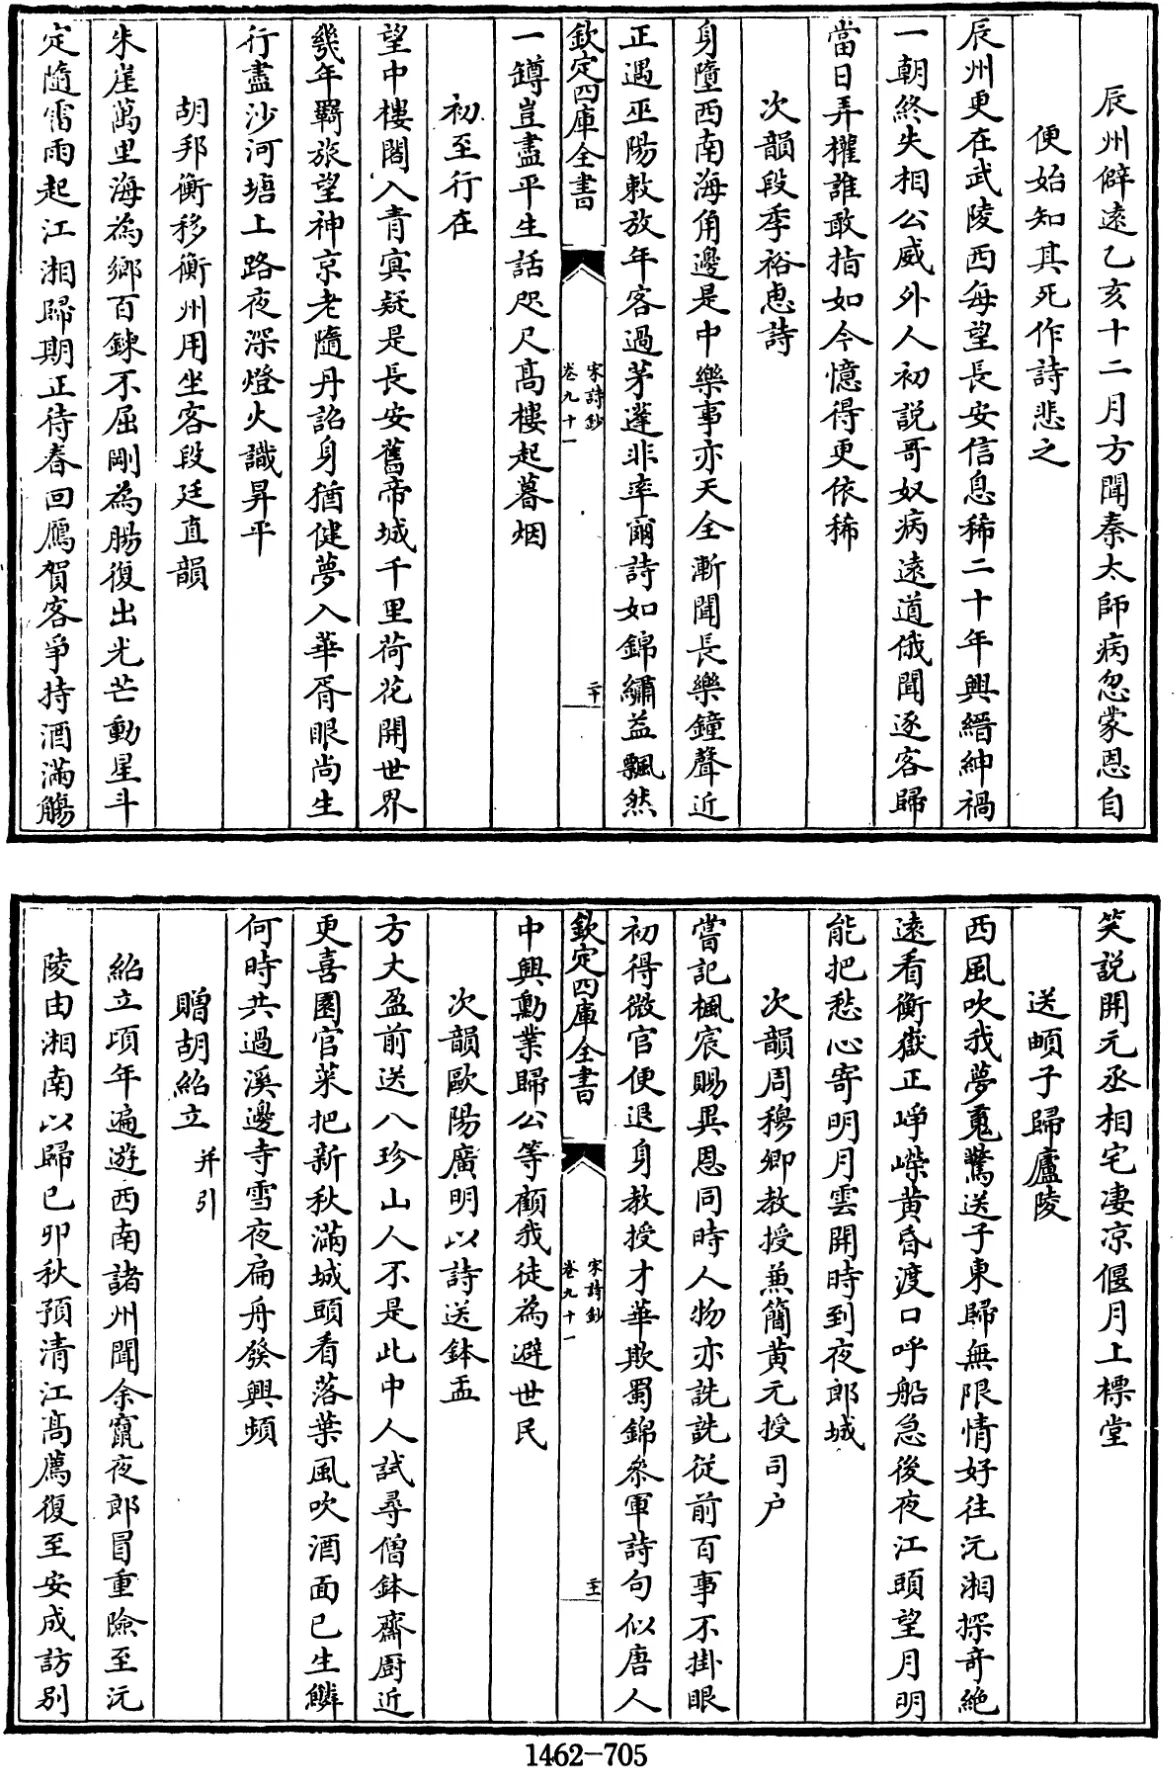 辰州僻遠乙亥十二月方聞秦太師病忽蒙恩自
便始知其死作詩悲之
辰州更在武陵西每望長安信息稀二十年興縉紳禍
一朝終失相公威外人初説哥奴病遠道俄聞逐客歸
當日弄權誰敢指如今憶得更依稀
次韻段季裕惠詩
身墮西南海角邊是中樂事亦天全漸聞長樂鐘聲近
正遇巫陽敕放年客過茅蓬非率爾詩如錦繡益飄然
欽定四庫全書
宋詩鈔
卷九十一
二十
一罇豈盡平生話咫尺髙樓起暮烟
初至行在
望中樓閣入青寅疑是長安舊帝城千里荷花開世界
幾年羈旅望神京老隨丹詔身猶健夢入華胥眼尚生
行盡沙河塘上路夜深燈火識昇平
胡邦衡移衡州用坐客段廷直韻
朱崖萬里海為鄉百鍊不屈剛為腸復出光芒動星斗
定隨雷雨起江湘歸期正待春回鴈賀客爭持酒滿觴
笑説開元丞相宅淒凉偃月上標堂
送䪴子歸廬陵
西風吹我夢魂驚送子東歸無限情好往沅湘探奇絶
遠看衡嶽正崢嶸黄昏渡口呼船急後夜江頭望月明
能把愁心寄明月雲開時到夜郎城
次韻周穆卿教授兼簡黄元授司户
嘗記楓宸賜異恩同時人物亦詵詵從前百事不掛眼
初得微官便退身教授才華欺蜀錦叅軍詩句似唐人
欽定四庫全書
宋詩鈔
卷九十一
二十一
中興勳業歸公等顧我徒為避世民
次韻歐陽廣明以詩送鉢盂
方丈盈前送八珍山人不是此中人試尋僧鉢齋厨近
更喜園官菜把新秋滿城頭看落葉風吹酒面已生鱗
何時共過溪邊寺雪夜扁舟發興頻
贈胡紹立 并引
紹立頃年遍遊西南諸州聞余竄夜郎冒重險至沅
陵由湘南以歸已卯秋預清江髙薦復至安成訪别
1462-705